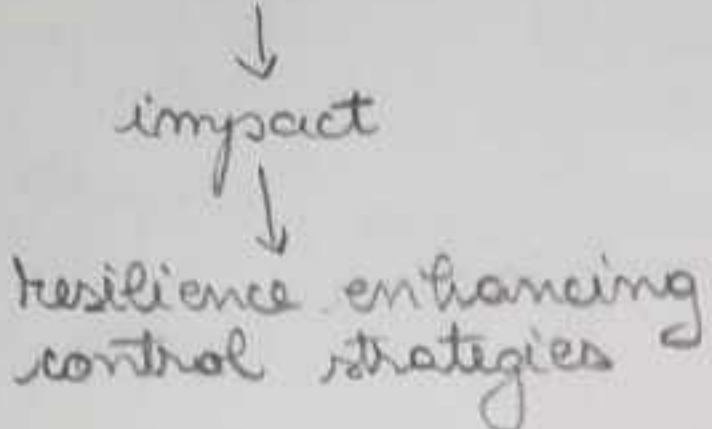 impact
resilience enhancing
control strategies